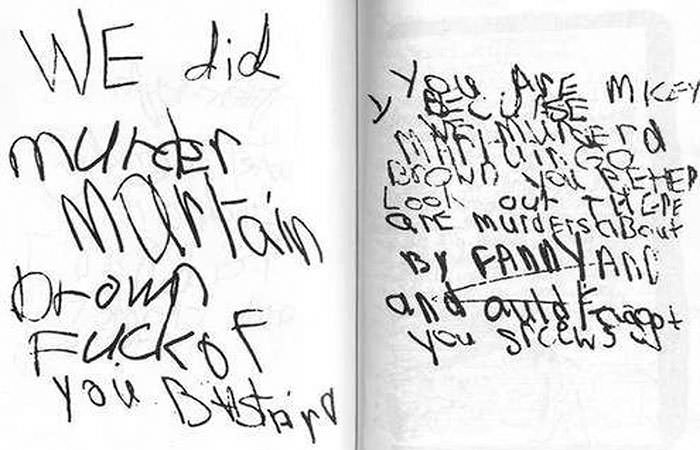 WE did
murder
MArtain
brown
Fuckof
you BAStArd
you ARE MICEY
y BECUSE
WE murderd
MArtain GO
Brown you BETER
Look out THERE
are murders about
By FANNYAND
and auld Faggot
you srcews